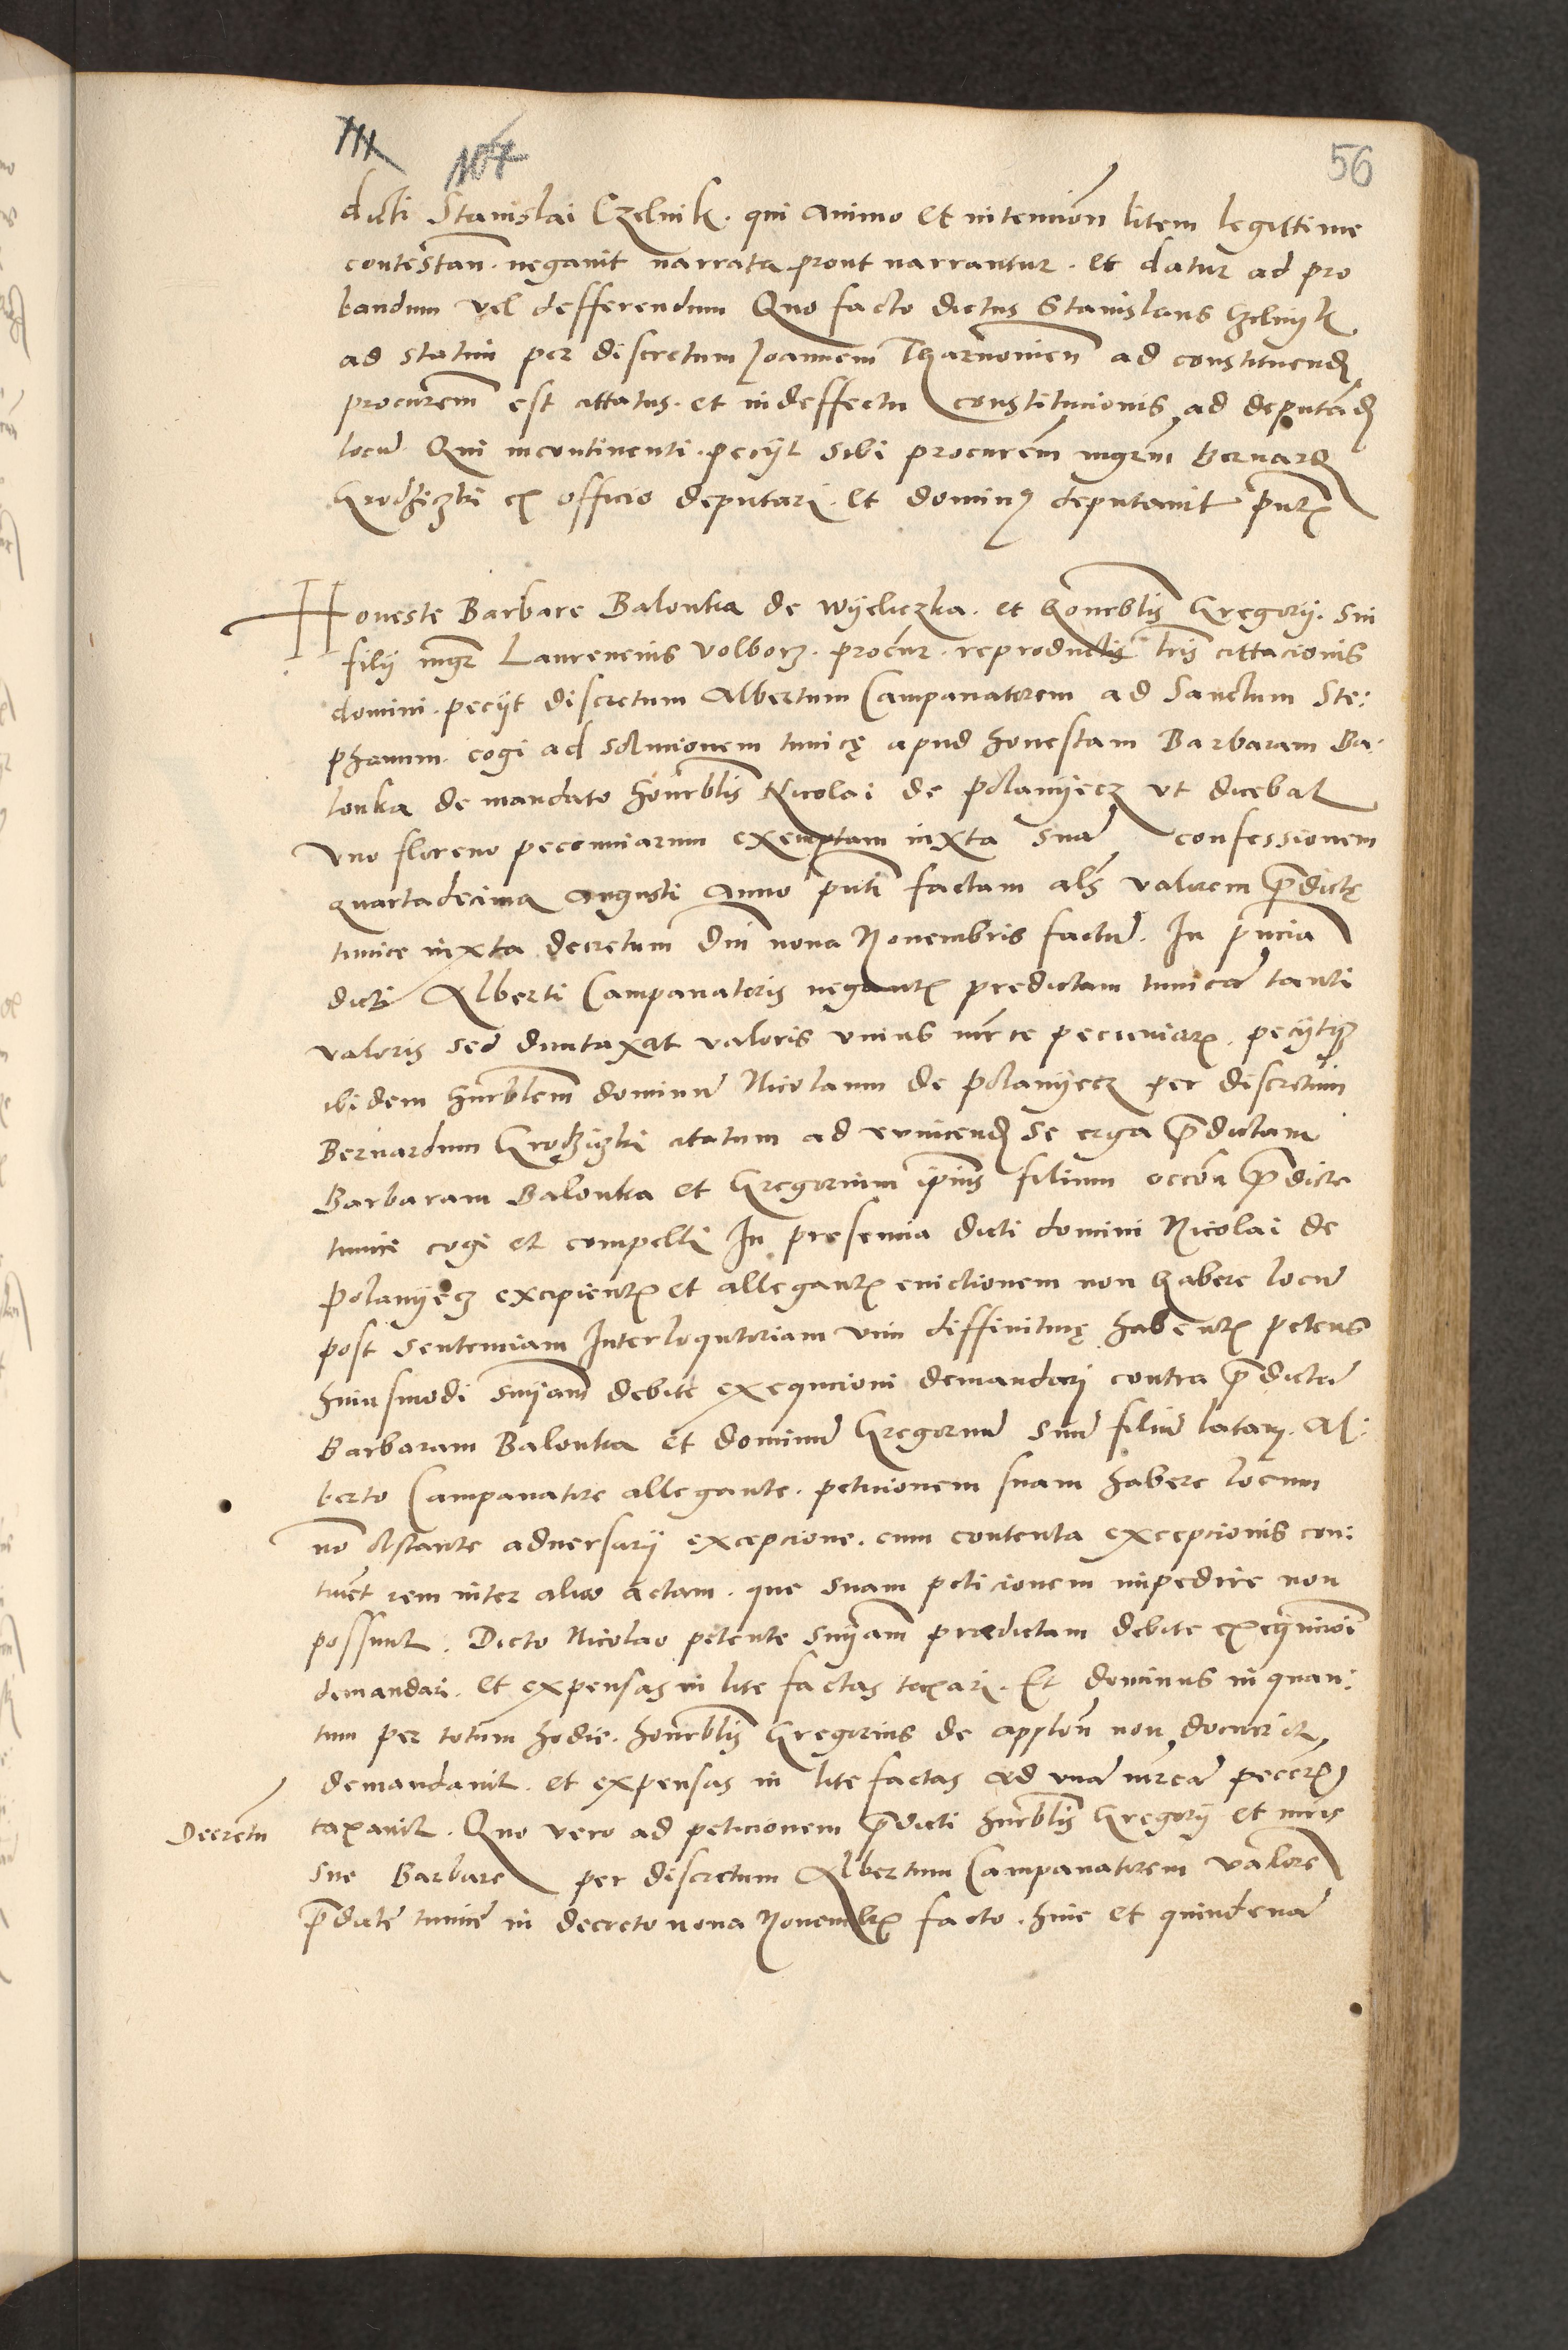 111 107 56
dicti Stanislai Czelnik. qui animo et intencion̄ litem legittime
contestan̄. negauit narrata prout narrantur. et datur ad pro
bandum vel defferendum Quo facto dictus Stanislaus Czelnyk
ad statim per discretum Joannem Tharnouien̄ ad constituend̄
procurem̄ est cittatus. et in deffectu constitucionis ad deputad̄
locū Qui incontinenti. pecijt sibi procurem̄ mgrm̄ Bernard̄
Grodziczki ex officio deputari. et dominꝰ deputauit pn̄tꝫ
Honeste Barbare Balonka de Wyeliczka. et honerblis̄ Gregorij. sui
filij mgr̄ Laurencius Volborz. procur̄. reproductis lr̄is cittacionis
domini. pecijt discretum Albertum Campanatorem ad Sanctum Ste:
phanum. cogi ad solucionem tunicę apud honestam Barbaram Ba:
lonka de mandato honorblis̄ Nicolai de Polanyecz vt dicebat
vno floreno pecunniarum exemptam iuxta suā confessionem
quartadecima Augusti Anno pn̄ti factam al̄s valorem p̄dictę
tunice iuxta decretum dn̄i nona Nouembris factū. In pn̄cia
dicti Alberti Campanatoris negantꝫ predictam tunicā tanti
valoris sed duntaxat valoris vnius mr̄ce pecuniarꝫ. pecijtqꝫ
ibidem hnrblem̄ dominū Nicolaum de Polanyecz per discretum
Bernardum Grodziczki citatum ad euincend̄ se erga p̄dictam
Barbaram Balonka et Gregorium ip̄ius filium occōn p̄dicte
tunice cogi et compelli In presencia dicti domini Nicolai de
Polanyecz excipientꝫ et allegantꝫ euictionem non habere locū
post sentenciam Interloqutoriam vim diffinitiuę habentꝫ petens
huiusmodi sn̄iam̄ debite exequcioni demandari contra p̄dictā
Barbaram Balonka et dominū Gregoriū suū filiū latam. Al:
berto Campanatore allegante. peticionem suam habere locum
nō obstante aduersarij excepcione. cum contenta excepcionis con:
tinēt rem inter alios actam. que suam peticionem impedire non
possunt. Dicto Nicolao petente sn̄iam̄ predictam debite exequcioī
demandari. et expensas in lite factas taxari. Et dominus in quan:
tum per totum hodie. honorblis̄ Gregorius de applon̄ non docuerit
demandauit. et expensas in lite factas ad vnā mr̄cā pecc̄rꝫ
Decretū taxauit. Quo vero ad peticionem p̄dicti hnrblis̄ Gregorij et mr̄is
sue Barbare per discretum Albertum Campanatorem valorē
p̄dicte tunicę in decreto nona Nouembrꝫ facto. hinc et quindenā